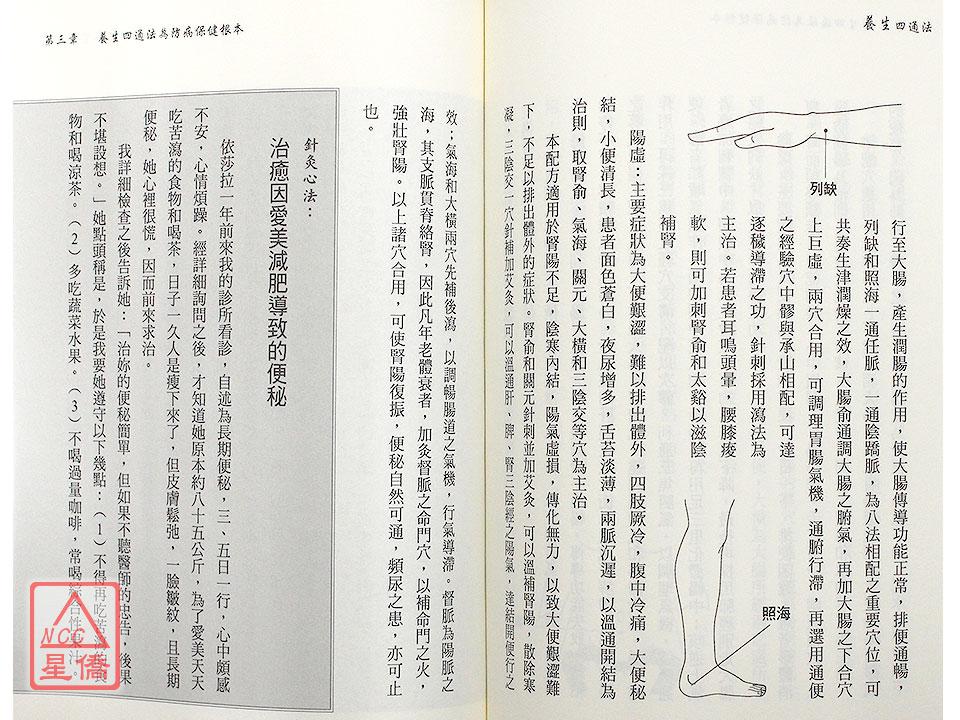 養生四通法
列缺
行至大腸，產生潤腸的作用，使大腸傳導功能正常，排便通暢，
列缺和照海一通任脈，一通陰蹻脈，為八法相配之重要穴位，可
共奏生津潤燥之效，大腸俞通調大腸之腑氣，再加大腸之下合穴
上巨虛，兩穴合用，可調理胃腸氣機，通腑行滯，再選用通便
之經驗穴中髎與承山相配，可達
逐穢導滯之功，針刺採用瀉法為
主治。若患者耳鳴頭暈，腰膝痠
軟，則可加刺腎俞和太谿以滋陰
補腎。
照海
陽虛：主要症狀為大便艱澀，難以排出體外，四肢厥冷，腹中冷痛，大便秘
結，小便清長，患者面色蒼白，夜尿增多，舌苔淡薄，兩脈沉遲，以溫通開結為
治則，取腎俞、氣海、關元、大橫和三陰交等穴為主治。
本配方適用於腎陽不足，陰寒內結，陽氣虛損，傳化無力，以致大便艱澀難
下，不足以排出體外的症狀。腎俞和關元針刺並加艾灸，可以溫補腎陽，散除寒
凝，三陰交一穴針補加艾灸，可以溫通肝、脾、腎三陰經之陽氣，達結開便行之
第三章　養生四通法為防病保健根本
效；氣海和大橫兩穴先補後瀉，以調暢腸道之氣機，行氣導滯。督脈為陽脈之
海，其支脈貫脊絡腎，因此凡年老體衰者，加灸督脈之命門穴，以補命門之火，
強壯腎陽。以上諸穴合用，可使腎陽復振，便秘自然可通，頻尿之患，亦可止
也。
針灸心法：
治癒因愛美減肥導致的便秘
依莎拉一年前來我的診所看診，自述為長期便秘，三、五日一行，心中頗感
不安，心情煩躁。經詳細詢問之後，才知道她原本約八十五公斤，為了愛美天天
吃苦瀉的食物和喝茶，日子一久人是瘦下來了，但皮膚鬆弛，一臉皺紋，且長期
便秘，她心裡很慌，因而前來求治。
我詳細檢查之後告訴她：「治妳的便秘簡單，但如果不聽醫師的忠告，後果
不堪設想。」她點頭稱是，於是我要她遵守以下幾點：（1）不得再吃苦瀉的食
物和喝涼茶。（2）多吃蔬菜水果。（3）不喝過量咖啡，常喝綜合性果汁。
NCC
星僑